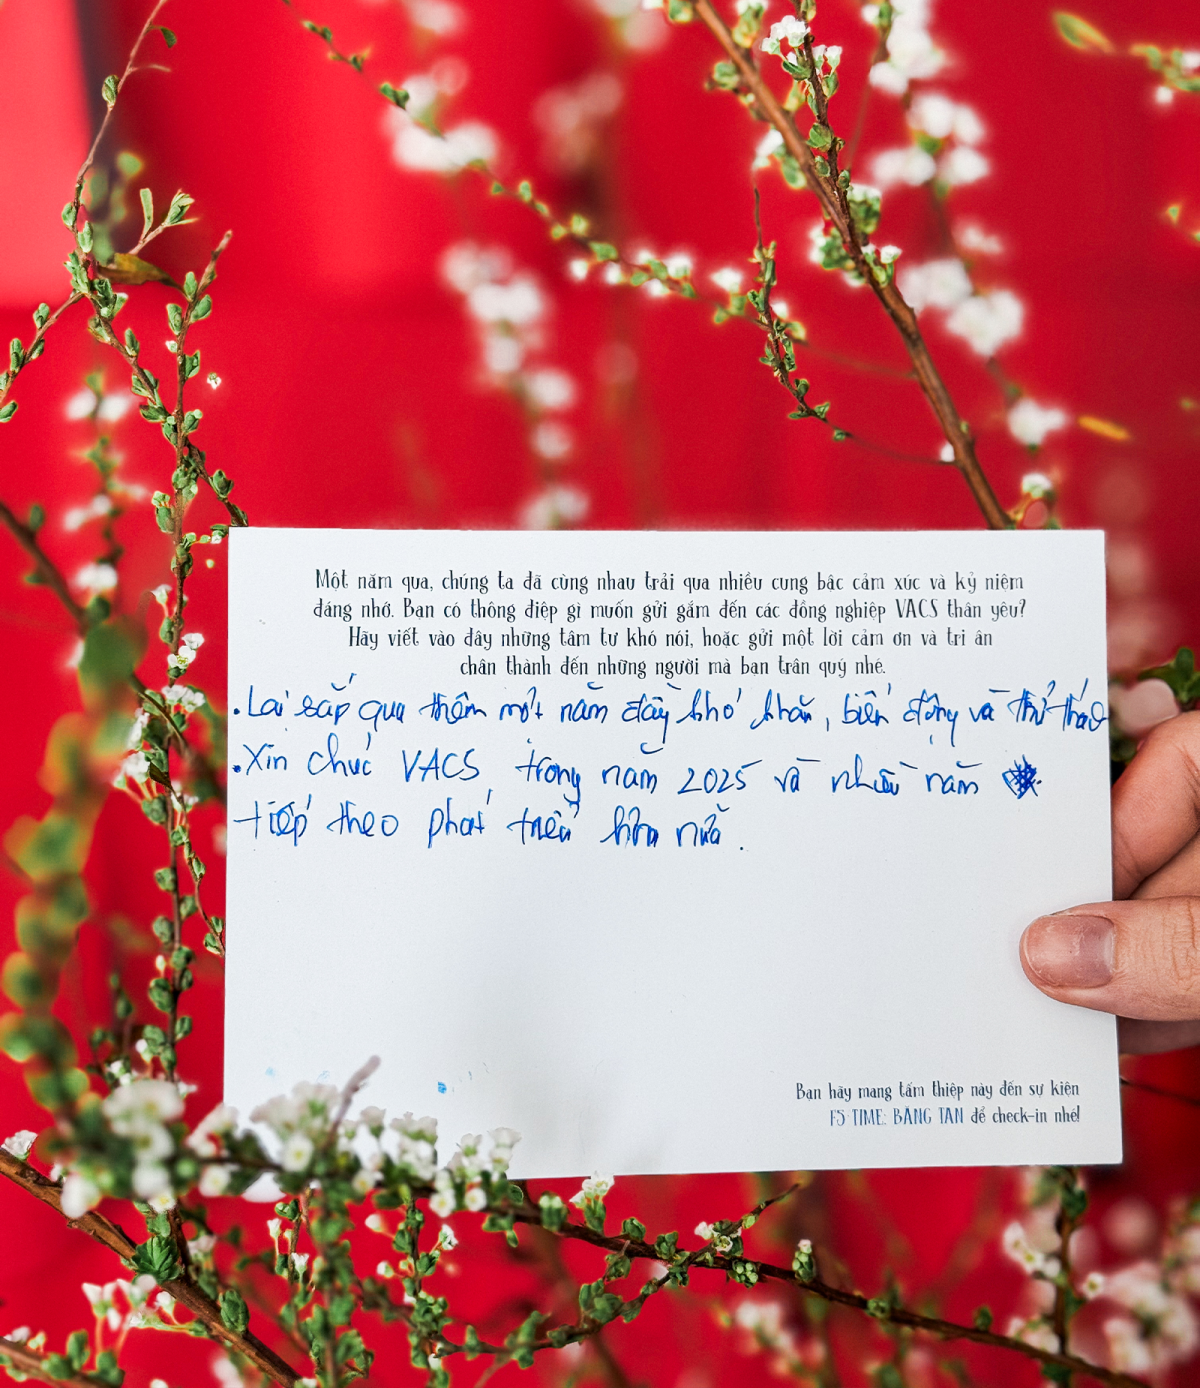 Một năm qua, chúng ta đã cùng nhau trải qua nhiều cung bậc cảm xúc và kỷ niệm
đáng nhớ. Bạn có thông điệp gì muốn gửi gắm đến các đồng nghiệp VACS thân yêu?
Hãy viết vào đây những tâm tư khó nói, hoặc gửi một lời cảm ơn và tri ân
chân thành đến những người mà bạn trân quý nhé.
. Lại sắp qua thêm một năm đầy khó khăn, biến động và thử thách
. Xin chúc VACS trong năm 2025 và nhiều năm
tiếp theo phát triển hơn nữa.
Bạn hãy mang tấm thiệp này đến sự kiện
F5 TIME: BĂNG TAN để check-in nhé!